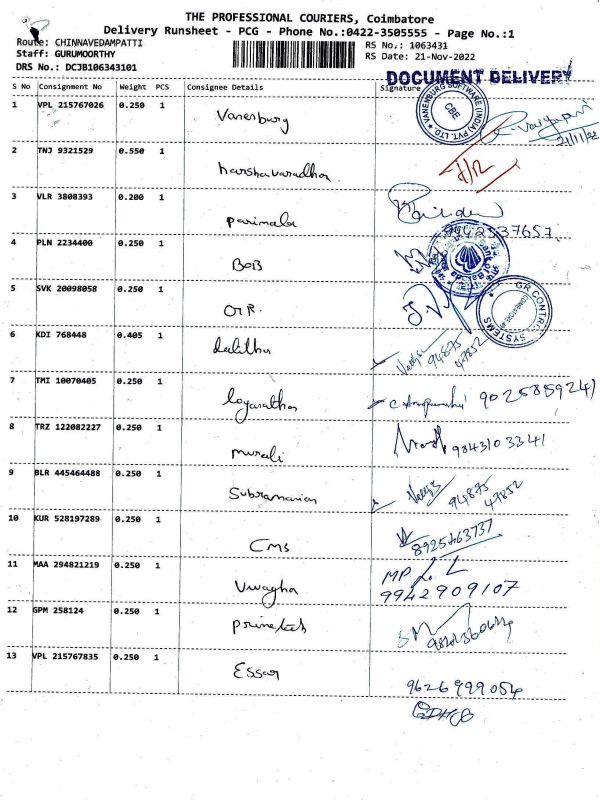 THE PROFESSIONAL COURIERS, Coimbatore
Delivery Runsheet - PCG - Phone No.:0422-3505555 - Page No.:1
Route: CHINNAVEDAMPATTI
RS No,: 1063431
Staff: GURUMOORTHY
RS Date: 21-Nov-2022
DRS No.: DCJB106343101
DOCUMENT DELIVERY
S No Consignment No Weight PCS Consignee Details Signature
1 VPL 215767026 0.250 1 Vanenburg
VANENBURG SOFTWARE (INDIA) PVT. LTD. CBE
21/11/22
2 TNJ 9321529 0.550 1 harshavaradhan
3 VLR 3808393 0.200 1 parimala
9442537657
4 PLN 2234400 0.250 1 BOB
5 SVK 20098058 0.250 1 G.R.
GR CONTROL SYSTEMS
6 KDI 768448 0.405 1 Lalitha
94875 47852
7 TMI 10070405 0.250 1 loganathan
9025859241
8 TRZ 122082227 0.250 1 murali
9843103341
9 BLR 445464488 0.250 1 Subramanian
94875 47852
10 KUR 528197289 0.250 1 CMS
8925463737
11 MAA 294821219 0.250 1
MP
9942909107
12 GPM 258124 0.250 1
13 VPL 215767835 0.250 1 Essar
9626999054